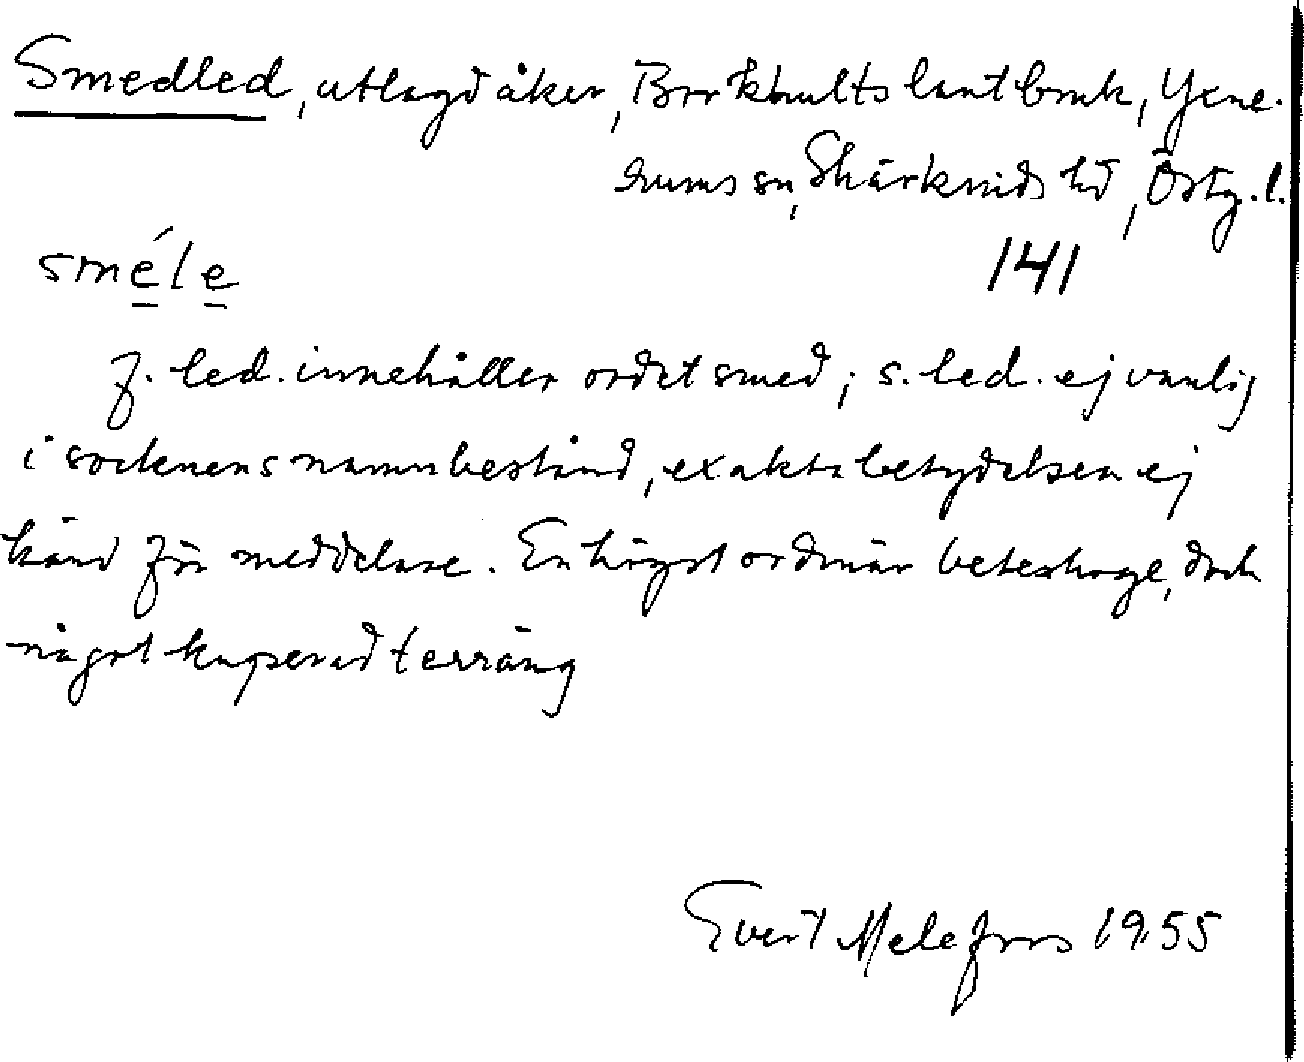 Smedled, utlagd åker, Borkhults lantbruk, Yxne-
rums sn, Skärkinds hd, Östg.l.
sméle 141
f. led. innehåller ordet smed; s. led. ej vanlig
i sockenens namnbestånd, exakta betydelsen ej
känd för meddelare. En högst ordinär beteshage, dock
något kuperad terräng
Evert Melefors 1955